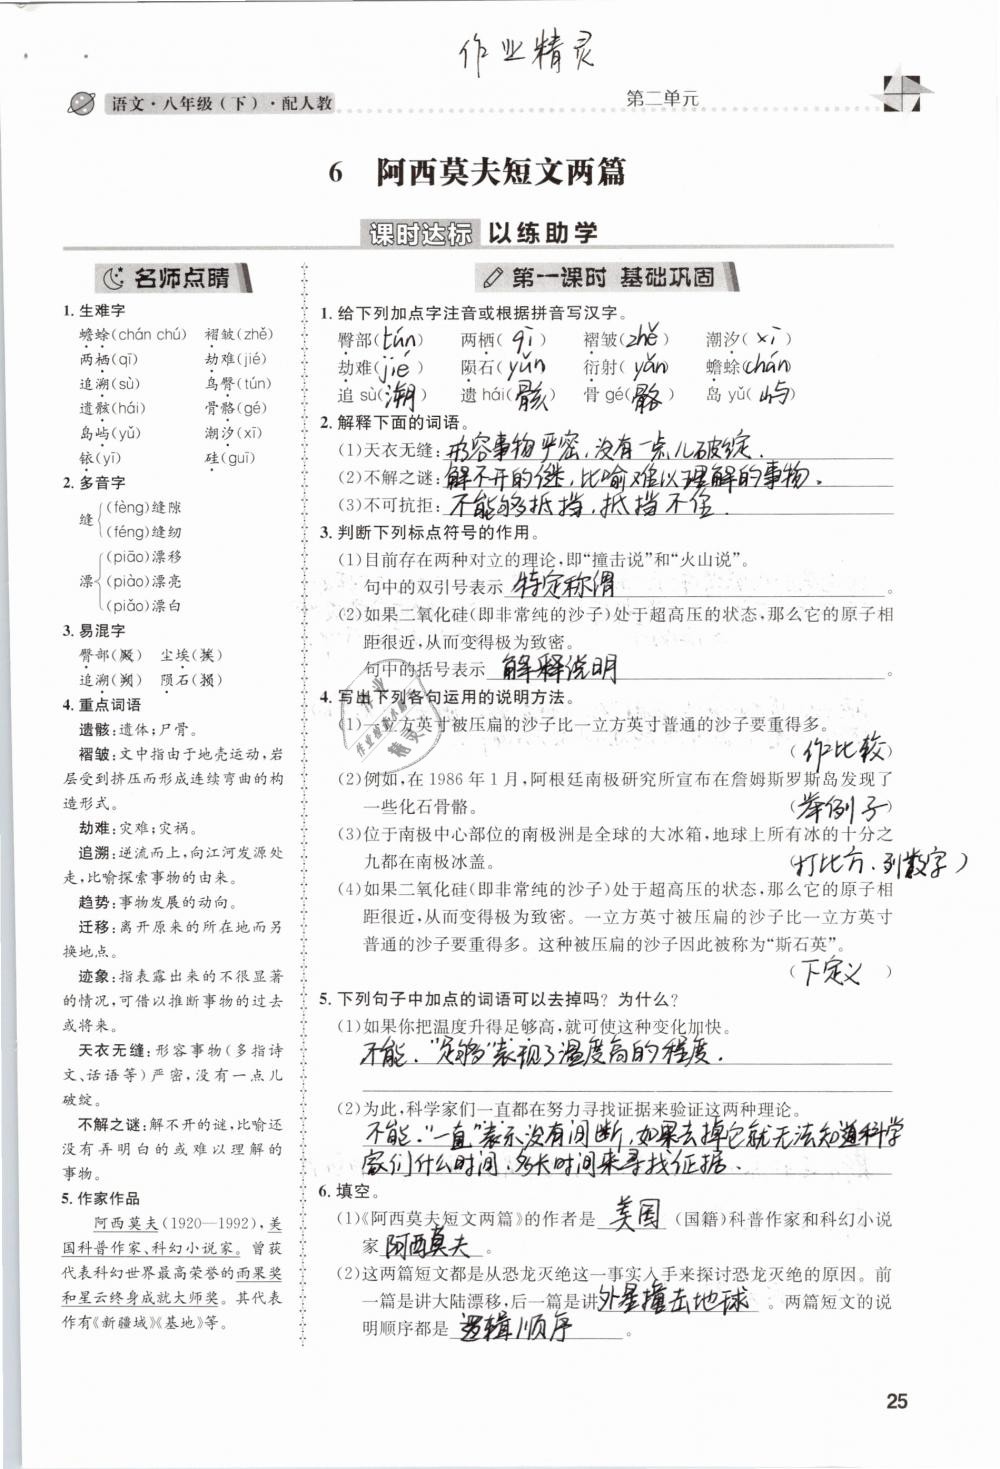 作业精灵
语文·八年级(下)·配人教
第二单元
6 阿西莫夫短文两篇
课时达标 以练助学
名师点睛
1. 生难字
蟾蜍(chán chú) 褶皱(zhě)
两栖(qī) 劫难(jié)
追溯(sù) 鸟臀(tún)
遗骸(hái) 骨骼(gé)
岛屿(yǔ) 潮汐(xī)
铱(yī) 硅(guī)
2. 多音字
缝
(fèng)缝隙
(féng)缝纫
漂
(piāo)漂移
(piào)漂亮
(piǎo)漂白
3. 易混字
臀部(殿) 尘埃(挨)
追溯(朔) 陨石(损)
4. 重点词语
遗骸:遗体;尸骨。
褶皱:文中指由于地壳运动,岩
层受到挤压而形成连续弯曲的构
造形式。
劫难:灾难;灾祸。
追溯:逆流而上,向江河发源处
走,比喻探索事物的由来。
趋势:事物发展的动向。
迁移:离开原来的所在地而另
换地点。
迹象:指表露出来的不很显著
的情况,可借以推断事物的过去
或将来。
天衣无缝:形容事物(多指诗
文、话语等)严密,没有一点儿
破绽。
不解之谜:解不开的谜,比喻还
没有弄明白的或难以理解的
事物。
5. 作家作品
阿西莫夫(1920—1992),美
国科普作家、科幻小说家。曾获
代表科幻世界最高荣誉的雨果奖
和星云终身成就大师奖。其代表
作有《新疆域》《基地》等。
第一课时 基础巩固
1. 给下列加点字注音或根据拼音写汉字。
臀部(tún) 两栖(qī) 褶皱(zhě) 潮汐(xī)
劫难(jié) 陨石(yǔn) 衍射(yǎn) 蟾蜍(chán)
追sù(溯) 遗hái(骸) 骨gé(骼) 岛yǔ(屿)
2. 解释下面的词语。
(1)天衣无缝:形容事物严密,没有一点儿破绽.
(2)不解之谜:解不开的谜,比喻难以理解的事物。
(3)不可抗拒:不能够抵挡,抵挡不住.
3. 判断下列标点符号的作用。
(1)目前存在两种对立的理论,即“撞击说”和“火山说”。
句中的双引号表示 特定称谓 。
(2)如果二氧化硅(即非常纯的沙子)处于超高压的状态,那么它的原子相
距很近,从而变得极为致密。
句中的括号表示 解释说明 。
4. 写出下列各句运用的说明方法。
(1)一立方英寸被压扁的沙子比一立方英寸普通的沙子要重得多。
(作比较)
(2)例如,在1986年1月,阿根廷南极研究所宣布在詹姆斯罗斯岛发现了
一些化石骨骼。 (举例子)
(3)位于南极中心部位的南极洲是全球的大冰箱,地球上所有冰的十分之
九都在南极冰盖。 (打比方、列数字)
(4)如果二氧化硅(即非常纯的沙子)处于超高压的状态,那么它的原子相
距很近,从而变得极为致密。一立方英寸被压扁的沙子比一立方英寸
普通的沙子要重得多。这种被压扁的沙子因此被称为“斯石英”。
(下定义)
5. 下列句子中加点的词语可以去掉吗?为什么?
(1)如果你把温度升得足够高,就可使这种变化加快。
不能."足够"表现了温度高的程度.
(2)为此,科学家们一直都在努力寻找证据来验证这两种理论。
不能."一直"表示没有间断,如果去掉它就无法知道科学
家们什么时间,多长时间来寻找证据.
6. 填空。
(1)《阿西莫夫短文两篇》的作者是 美国 (国籍)科普作家和科幻小说
家 阿西莫夫 。
(2)这两篇短文都是从恐龙灭绝这一事实入手来探讨恐龙灭绝的原因。前
一篇是讲大陆漂移,后一篇是讲 外星撞击地球 。两篇短文的说
明顺序都是 逻辑顺序 。
25